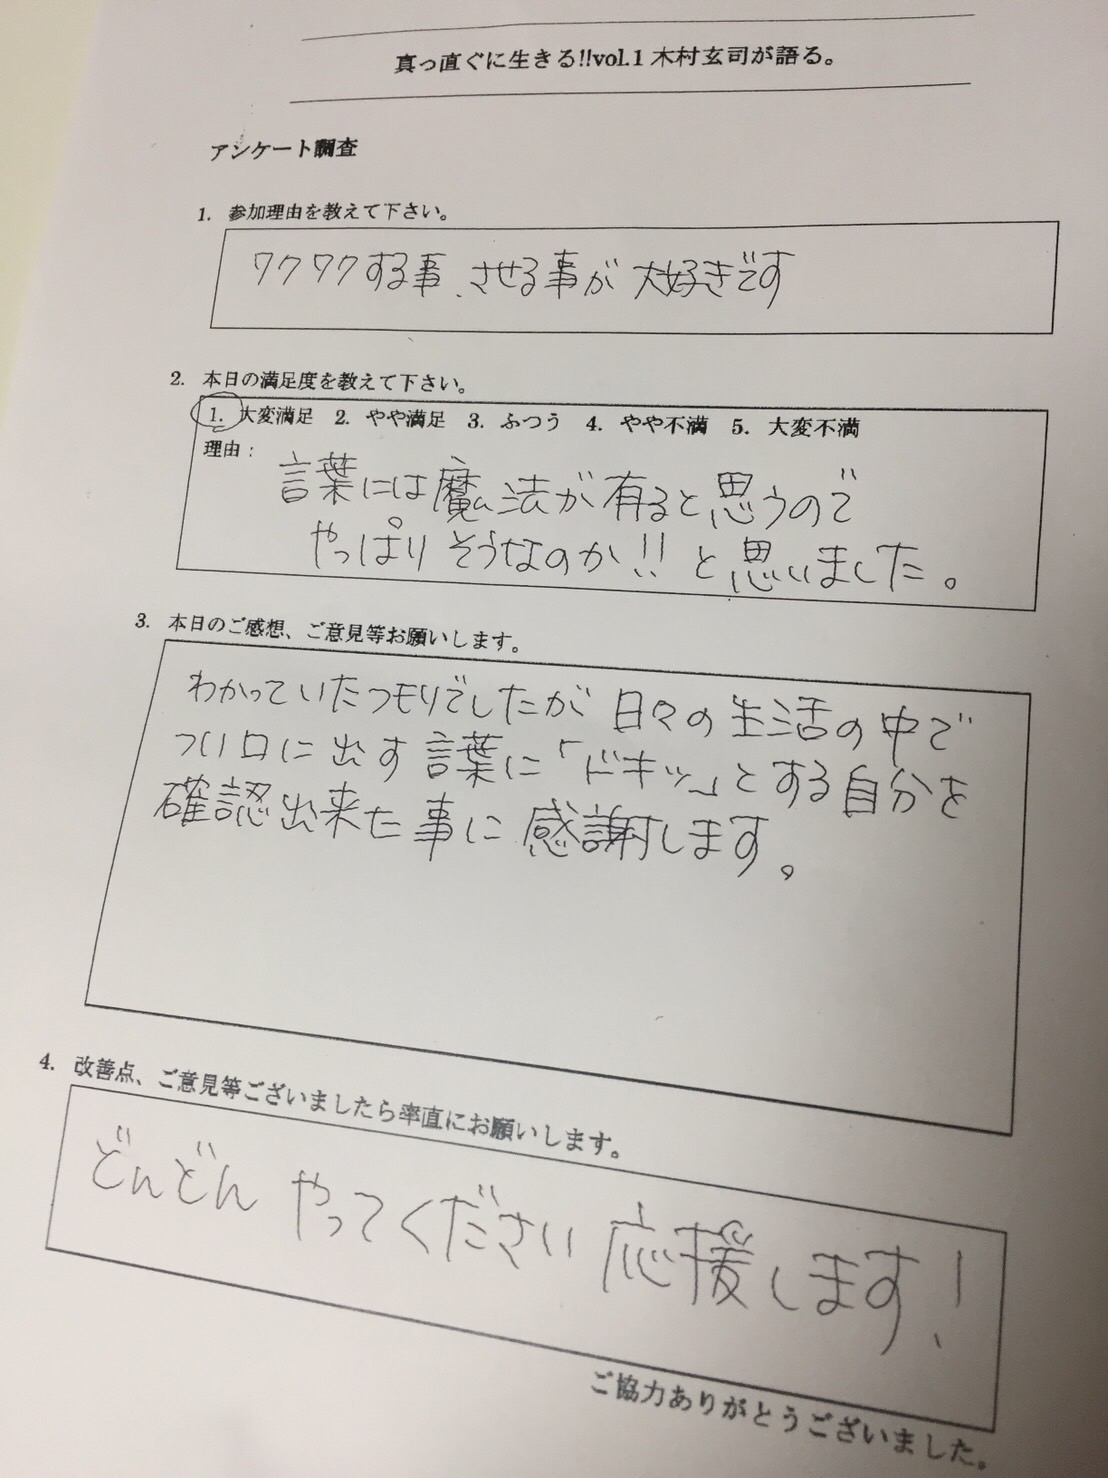 真っ直ぐに生きる!!vol.1 木村玄司が語る。
アンケート調査
1. 参加理由を教えて下さい。
ワクワクする事、させる事が大好きです
2. 本日の満足度を教えて下さい。
1. 大変満足 2. やや満足 3. ふつう 4. やや不満 5. 大変不満
理由：
言葉には魔法が有ると思うので
やっぱりそうなのか!!と思いました。
3. 本日のご感想、ご意見等お願いします。
わかっていたつモリでしたが日々の生活の中で
つい口に出す言葉に「ドキッ」とする自分を
確認出来た事に感謝します。
4. 改善点、ご意見等ございましたら率直にお願いします。
どんどんやってください応援します!
ご協力ありがとうございました。